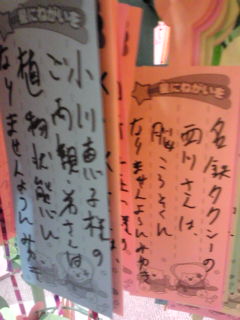 星にねがいを
名鉄タクシーの
西川さんは、
脳こうそくに
なりませんように
星にねがいを
小川恵子様の
ご両親弟さんは
植物状態に
なりませんように